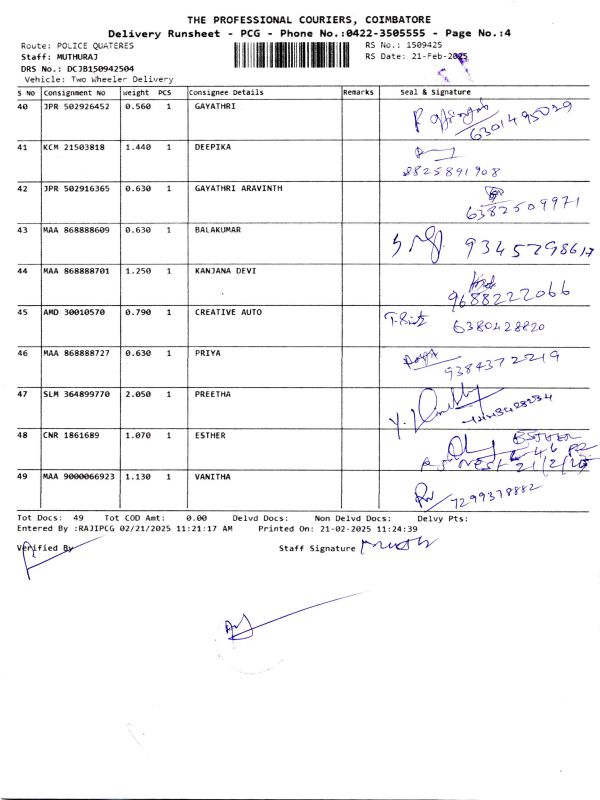 THE PROFESSIONAL COURIERS, COIMBATORE
Delivery Runsheet - PCG - Phone No.:0422-3505555 - Page No.:4
Route: POLICE QUATERES RS No.: 1509425
Staff: MUTHURAJ RS Date: 21-Feb-2025
DRS No.: DCJB150942504
Vehicle: Two Wheeler Delivery
S No Consignment No Weight PCS Consignee Details Remarks Seal & Signature
40 JPR 502926452 0.560 1 GAYATHRI 6301495029
41 KCM 21503818 1.440 1 DEEPIKA
8825891908
42 JPR 502916365 0.630 1 GAYATHRI ARAVINTH
6382509971
43 MAA 868888609 0.630 1 BALAKUMAR 9345298617
44 MAA 868888701 1.250 1 KANJANA DEVI
9688222066
45 AMD 30010570 0.790 1 CREATIVE AUTO 6380428820
46 MAA 868888727 0.630 1 PRIYA 9384372219
47 SLM 364899770 2.050 1 PREETHA
48 CNR 1861689 1.070 1 ESTHER ESTHER
21/2/25
49 MAA 9000066923 1.130 1 VANITHA 7299378882
Tot Docs: 49 Tot COD Amt: 0.00 Delvd Docs: Non Delvd Docs: Delvy Pts:
Entered By :RAJIPCG 02/21/2025 11:21:17 AM Printed On: 21-02-2025 11:24:39
Verified By Staff Signature